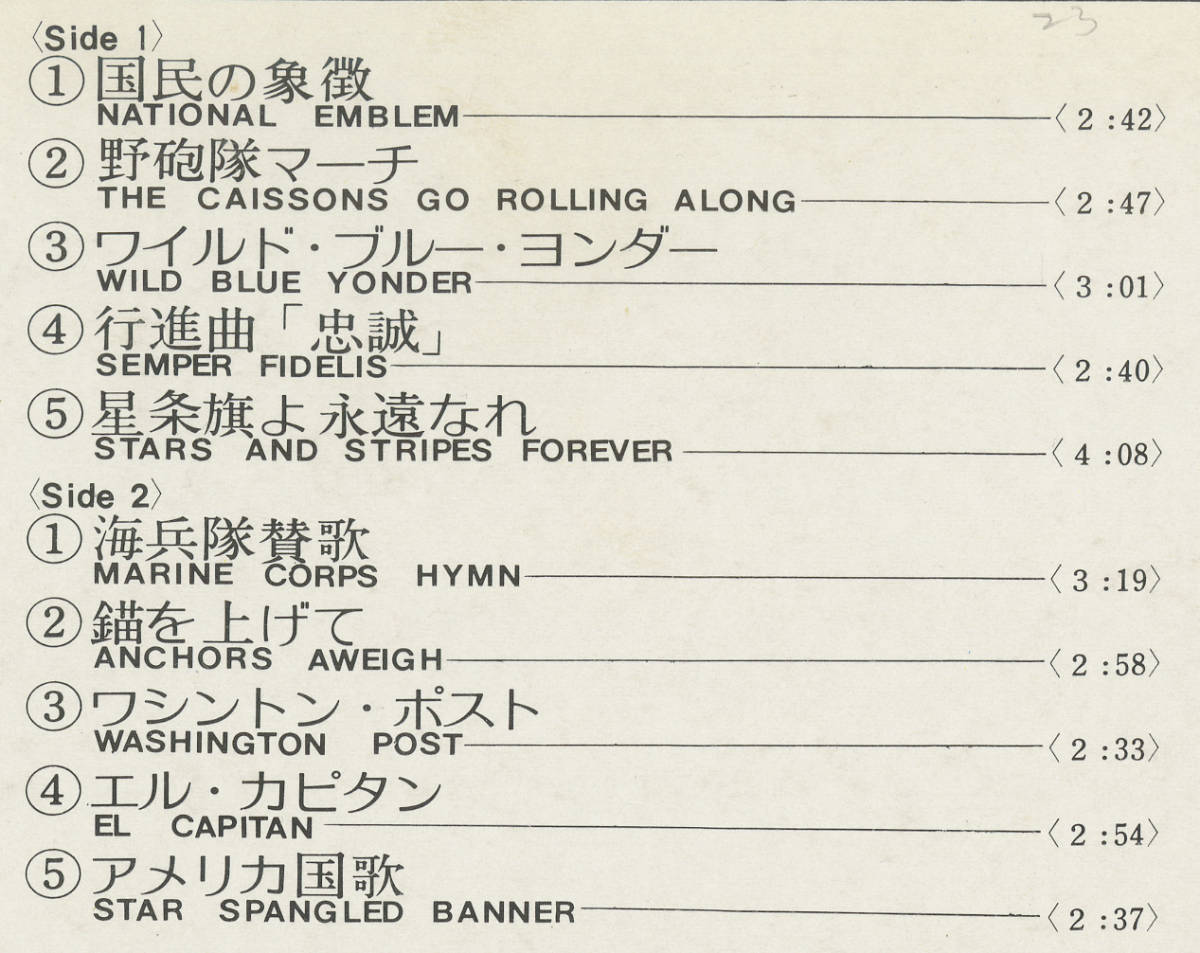 23
〈Side 1〉
①国民の象徴
NATIONAL EMBLEM〈2:42〉
②野砲隊マーチ
THE CAISSONS GO ROLLING ALONG〈2:47〉
③ワイルド・ブルー・ヨンダー
WILD BLUE YONDER〈3:01〉
④行進曲「忠誠」
SEMPER FIDELIS〈2:40〉
⑤星条旗よ永遠なれ
STARS AND STRIPES FOREVER〈4:08〉
〈Side 2〉
①海兵隊賛歌
MARINE CORPS HYMN〈3:19〉
②錨を上げて
ANCHORS AWEIGH〈2:58〉
③ワシントン・ポスト
WASHINGTON POST〈2:33〉
④エル・カピタン
EL CAPITAN〈2:54〉
⑤アメリカ国歌
STAR SPANGLED BANNER〈2:37〉